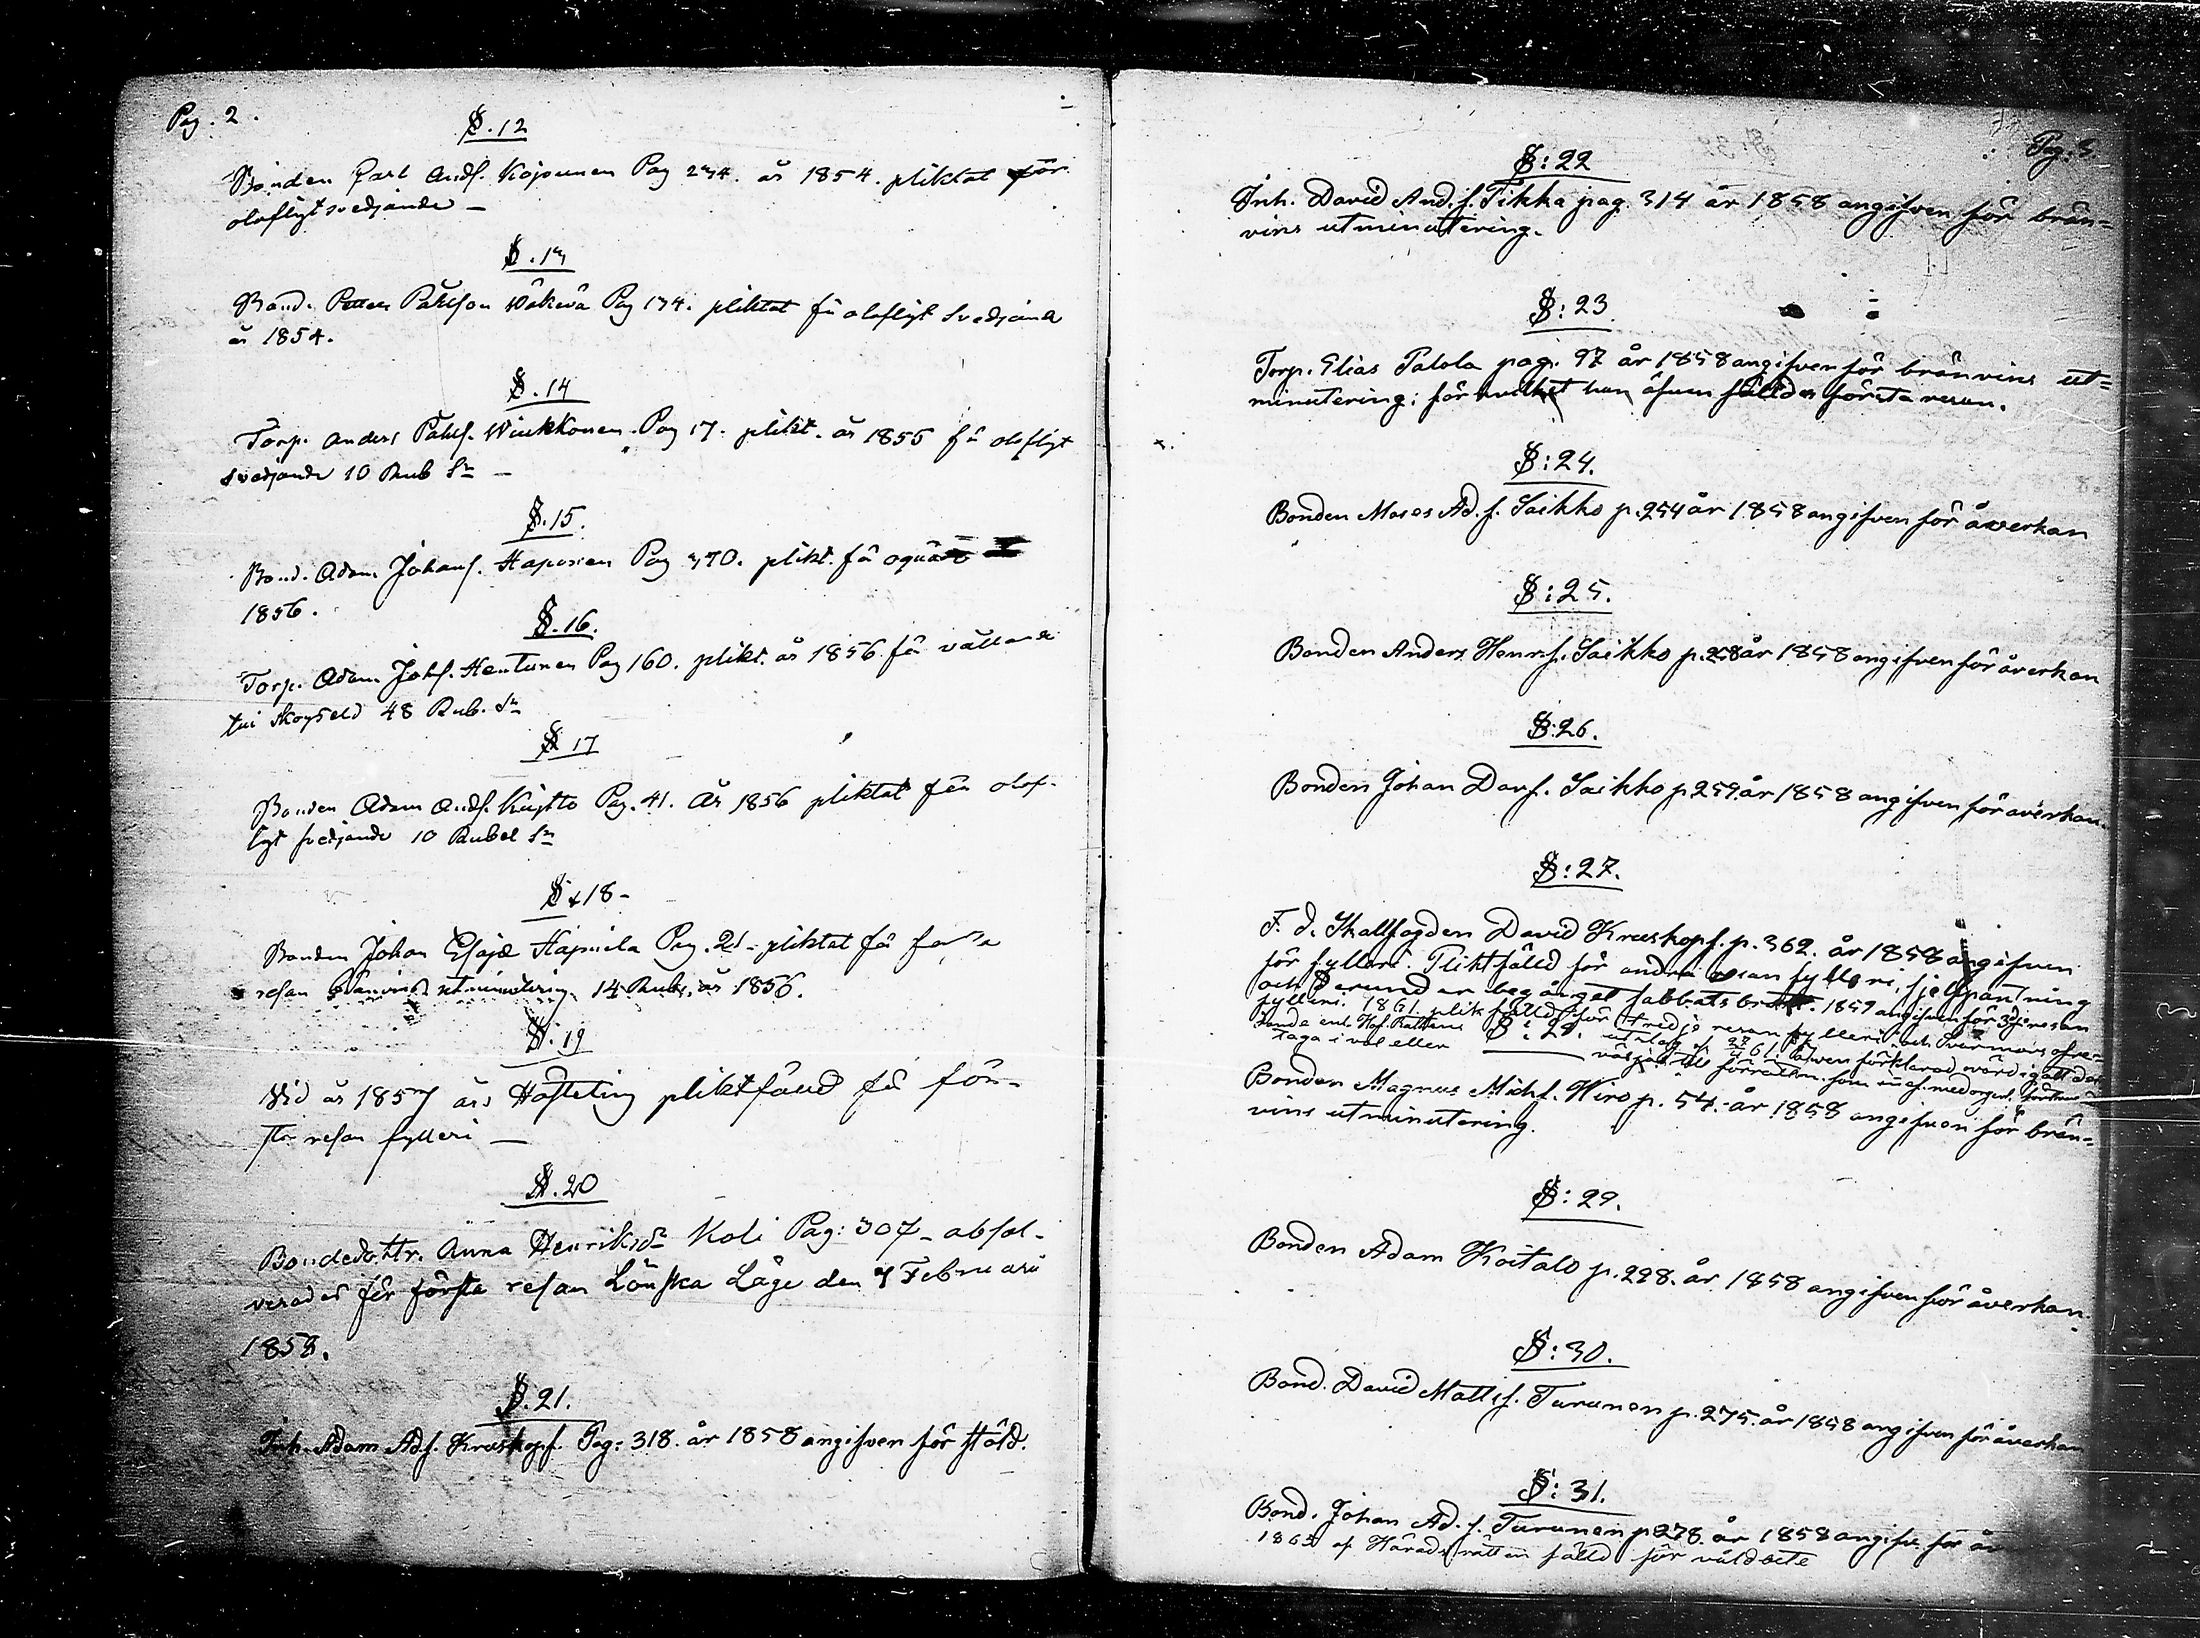 Pag. 2.
§.12
Bonden Carl Andf. Kojounen Pag 234. år 1854. pliktat för
olofligt svedjande —
§.13
Bond. Petter Påhlson Wäkevä Pag 134. pliktat för olofligt svedjande
år 1854.
§.14
Torp. Anders Påhlf. Winkkonen Pag 17. plikt. år 1855 för olofligt
svedjande 10 Rub Sr —
§.15.
Bond. Adam Johansf. Haponen Pag 370. plikt. för oquäd
1856.
§.16.
Torp. Adam Johf. Hentunen Pag 160. plikt. år 1856 för vållande
till skogseld 48 Rub. Sr
§ 17
Bonden Adam Andf. Kujtto Pag. 41. År 1856 pliktat för olof-
ligt svedjande 10 Rubel Sr
§ 18-
Bonden Johan Esajæ Hapuila Pag. 21 - pliktat för första
resan bränvins utminutering 14 Rub. år 1856.
§.19
Vid år 1857 års Hösteting pliktfäld för för-
sta resan fylleri —
§.20
Bondedottr. Anna Henriksdr Koli Pag: 307 - absol-
verades för första resan Lönska Läge den 7 Februari
1858.
§.21.
Inh. Adam Adf. Kruskopf. Pag: 318. år 1858 angifven för stöld.
Pag: 3
§:22
Inh. David And. f. Tikka pag. 314 år 1858 angifven för brän=
vins utminutering.
§:23.
Torp. Elias Palola pag. 97 år 1858 angifven för bränvins ut=
minutering; för hvilket han äfven fälldes första resan.
§:24.
Bonden Moses Ad. f. Saikko p. 254 år 1858 angifven för åverkan
§:25.
Bonden Anders Henr. f. Saikko p. 258 år 1858 angifven för åverkan
§:26.
Bonden Johan Davf. Saikko p 259. år 1858 angifven för åverkan.
§:27.
F. d. Skallfogden David Kruskopf. p. 362. år 1858 angifven
för fylleri. Pliktfälld för andra resan fylleri, sjelfpantning
och derunder begånget sabbatsbrott. 1859 angifven för 3dje resan
fylleri. 1861 pliktfälld för tredje resan fylleri och
enl. Hof Rättens utslag af 27/4 61 äfven förklarad ovärdig att del=
taga i val eller väljas till förrättn. som m af medborgerl. förtroende
§:28.
Bonden Magnus Michf. Hiro p. 54. år 1858 angifven för brän=
vins utminutering.
§:29.
Bonden Adam Koitalo p. 298. år 1858 angifven för åverkan.
§:30.
Bond. David Mattsf. Turunen p. 275. år 1858 angifven för åverkan
§:31.
Bond. Johan Ad. f. Turunen p 278. år 1858 angifv. för åv
1863 af Häradsrätten fälld för våldbete